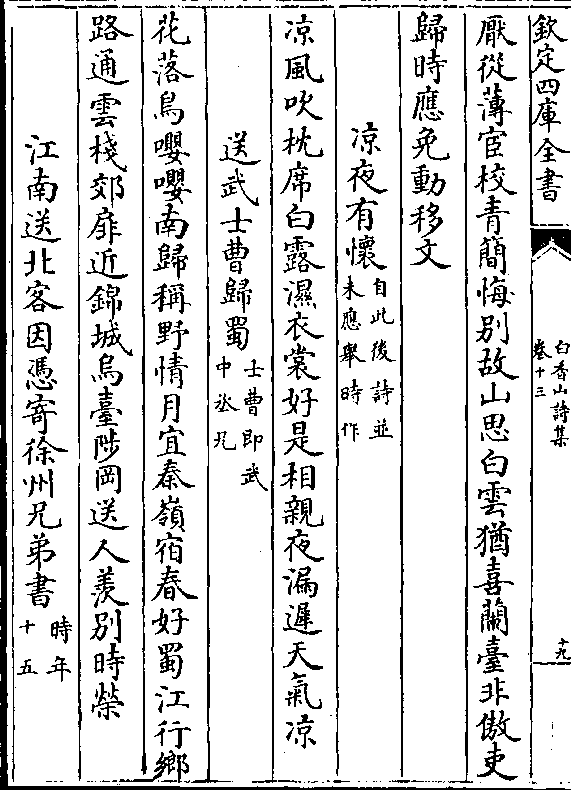 欽定四庫全書
白香山詩集
卷十三
十九
厭從薄宦校青簡悔別故山思白雲猶喜蘭臺非傲吏
歸時應免動移文
凉夜有懷自此後詩並
未應舉時作
凉風吹枕席白露濕衣裳好是相親夜漏遲天氣凉
送武士曹歸蜀士曹即武
中丞兄
花落鳥嚶嚶南歸稱野情月宜秦嶺宿春好蜀江行鄉
路通雲棧郊扉近錦城烏臺陟岡送人羨別時榮
江南送北客因憑寄徐州兄弟書時年
十五